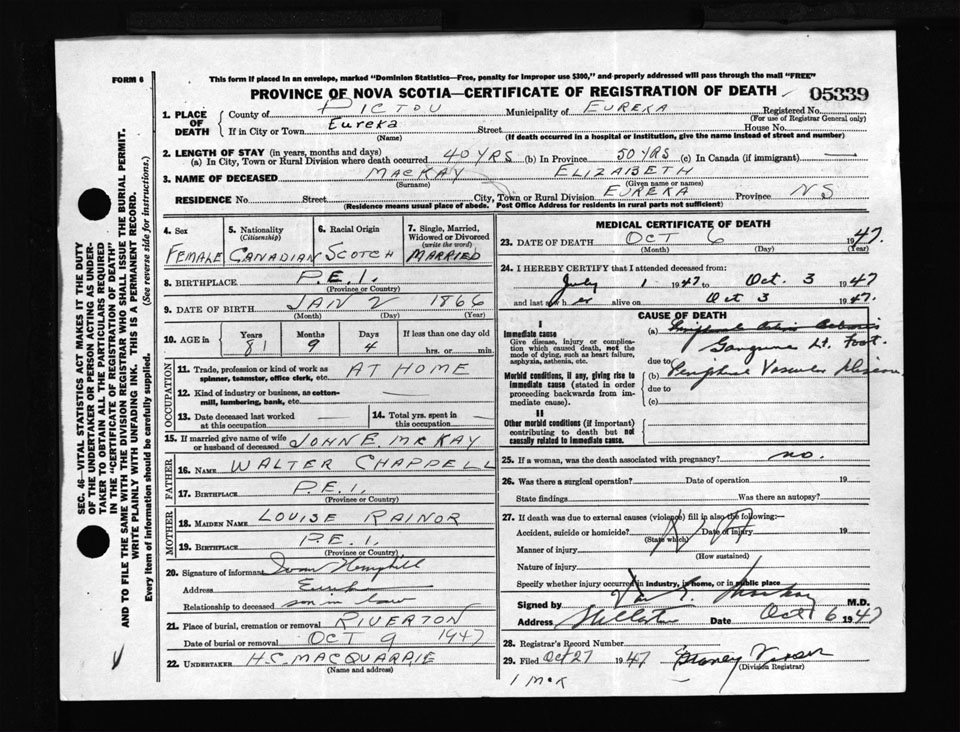 FORM 6
This form if placed in an envelope, marked "Dominion Statistics—Free, penalty for improper use $300," and properly addressed will pass through the mail "FREE"
PROVINCE OF NOVA SCOTIA—CERTIFICATE OF REGISTRATION OF DEATH
05339
1. PLACE OF DEATH
County of PICTOU Municipality of EUREKA Registered No.
(For use of Registrar General only)
If in City or Town Eureka Street House No.
(Name) (If death occurred in a hospital or institution, give the name instead of street and number)
2. LENGTH OF STAY (in years, months and days)
(a) In City, Town or Rural Division where death occurred 40 YRS (b) In Province 50 YRS (c) In Canada (if immigrant) —
3. NAME OF DECEASED MACKAY ELIZABETH
(Surname) (Given name or names)
RESIDENCE No. Street City, Town or Rural Division EUREKA Province NS
(Residence means usual place of abode. Post Office Address for residents in rural parts not sufficient)
4. Sex
FEMALE
5. Nationality
(Citizenship)
CANADIAN
6. Racial Origin
SCOTCH
7. Single, Married, Widowed or Divorced
(write the word)
MARRIED
8. BIRTHPLACE P.E.I.
(Province or Country)
9. DATE OF BIRTH JAN 2 1866
(Month) (Day) (Year)
10. AGE in
Years Months Days If less than one day old
81 9 4 hrs. or min.
OCCUPATION
11. Trade, profession or kind of work as AT HOME
spinner, teamster, office clerk, etc.
12. Kind of industry or business, as cotton- —
mill, lumbering, bank, etc.
13. Date deceased last worked —
at this occupation
14. Total yrs. spent in —
this occupation
15. If married give name of wife
or husband of deceased JOHN E. MCKAY
FATHER
16. NAME WALTER CHAPPELL
17. BIRTHPLACE P.E.I.
(Province or Country)
MOTHER
18. MAIDEN NAME LOUISE RAINOR
19. BIRTHPLACE P.E.I.
(Province or Country)
20. Signature of informant Hemphill
Address Eureka
Relationship to deceased son in law
21. Place of burial, cremation or removal RIVERTON
Date of burial or removal OCT 9 1947
22. UNDERTAKER H.C. MACQUARRIE
(Name and address)
MEDICAL CERTIFICATE OF DEATH
23. DATE OF DEATH OCT 6 1947.
(Month) (Day) (Year)
24. I HEREBY CERTIFY that I attended deceased from:
July 1 1947 to Oct 3 1947
and last saw her alive on Oct 3 1947.
CAUSE OF DEATH
I
Immediate cause
Give disease, injury or complication which caused death, not the mode of dying, such as heart failure, asphyxia, asthenia, etc.
(a)
Gangrene Lt. Foot.
due to
Morbid conditions, if any, giving rise to immediate cause (stated in order proceeding backwards from immediate cause).
(b) Peripheral Vascular Disease
due to
(c)
II
Other morbid conditions (if important) contributing to death but not causally related to immediate cause.
25. If a woman, was the death associated with pregnancy? no.
26. Was there a surgical operation? Date of operation 19
State findings Was there an autopsy?
27. If death was due to external causes (violence) fill in also the following:—
Accident, suicide or homicide? Date of injury 19
(State which)
Manner of injury
(How sustained)
Nature of injury
Specify whether injury occurred in industry, in home, or in public place
Signed by M.D.
Address Stellarton Date Oct 6 1947
28. Registrar's Record Number
29. Filed Oct 27 1947
(Division Registrar)
1 McK
SEC. 46—VITAL STATISTICS ACT MAKES IT THE DUTY
OF THE UNDERTAKER OR PERSON ACTING AS UNDER-
TAKER TO OBTAIN ALL THE PARTICULARS REQUIRED
IN THE "CERTIFICATE OF REGISTRATION OF DEATH"
AND TO FILE THE SAME WITH THE DIVISION REGISTRAR WHO SHALL ISSUE THE BURIAL PERMIT.
WRITE PLAINLY WITH UNFADING INK. THIS IS A PERMANENT RECORD.
Every item of information should be carefully supplied. (See reverse side for instructions.)